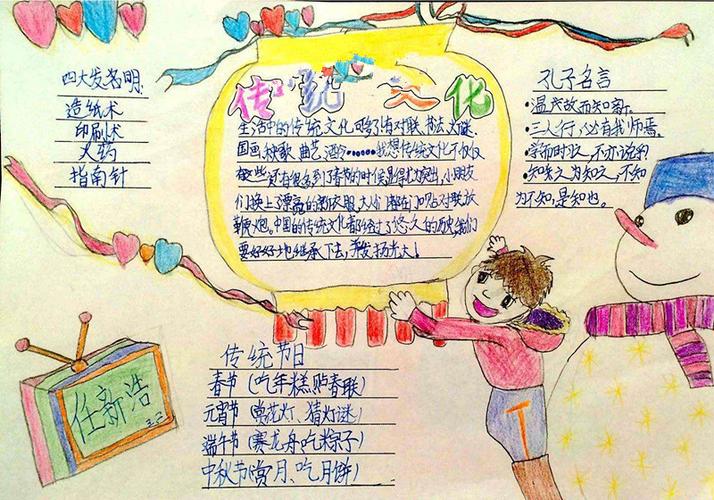 传统文化
四大发名明.
造纸术
印刷术
火药
指南针
生活中的传统文化可多了有对联、书法、灯谜、
国画、秧歌、曲艺、酒令……我想传统文化不仅仅
有这些还有很多到了春节的时候显得尤为突出,小朋友
们换上了漂亮的新衣服大人们都在门口贴对联放
鞭炮。中国的传统文化都经过了悠久的历史,我们
要好好地继承下去,并发扬光大!
孔子名言
·温故而知新。
·三人行,必有我师焉。
·学而时习,不亦说乎
·知之为知之,不知
为不知,是知也。
传统节日
春节(吃年糕、贴春联)
元宵节(赏花灯、猜灯谜)
端午节(赛龙舟、吃粽子)
中秋节(赏月、吃月饼)
任新浩
3.2